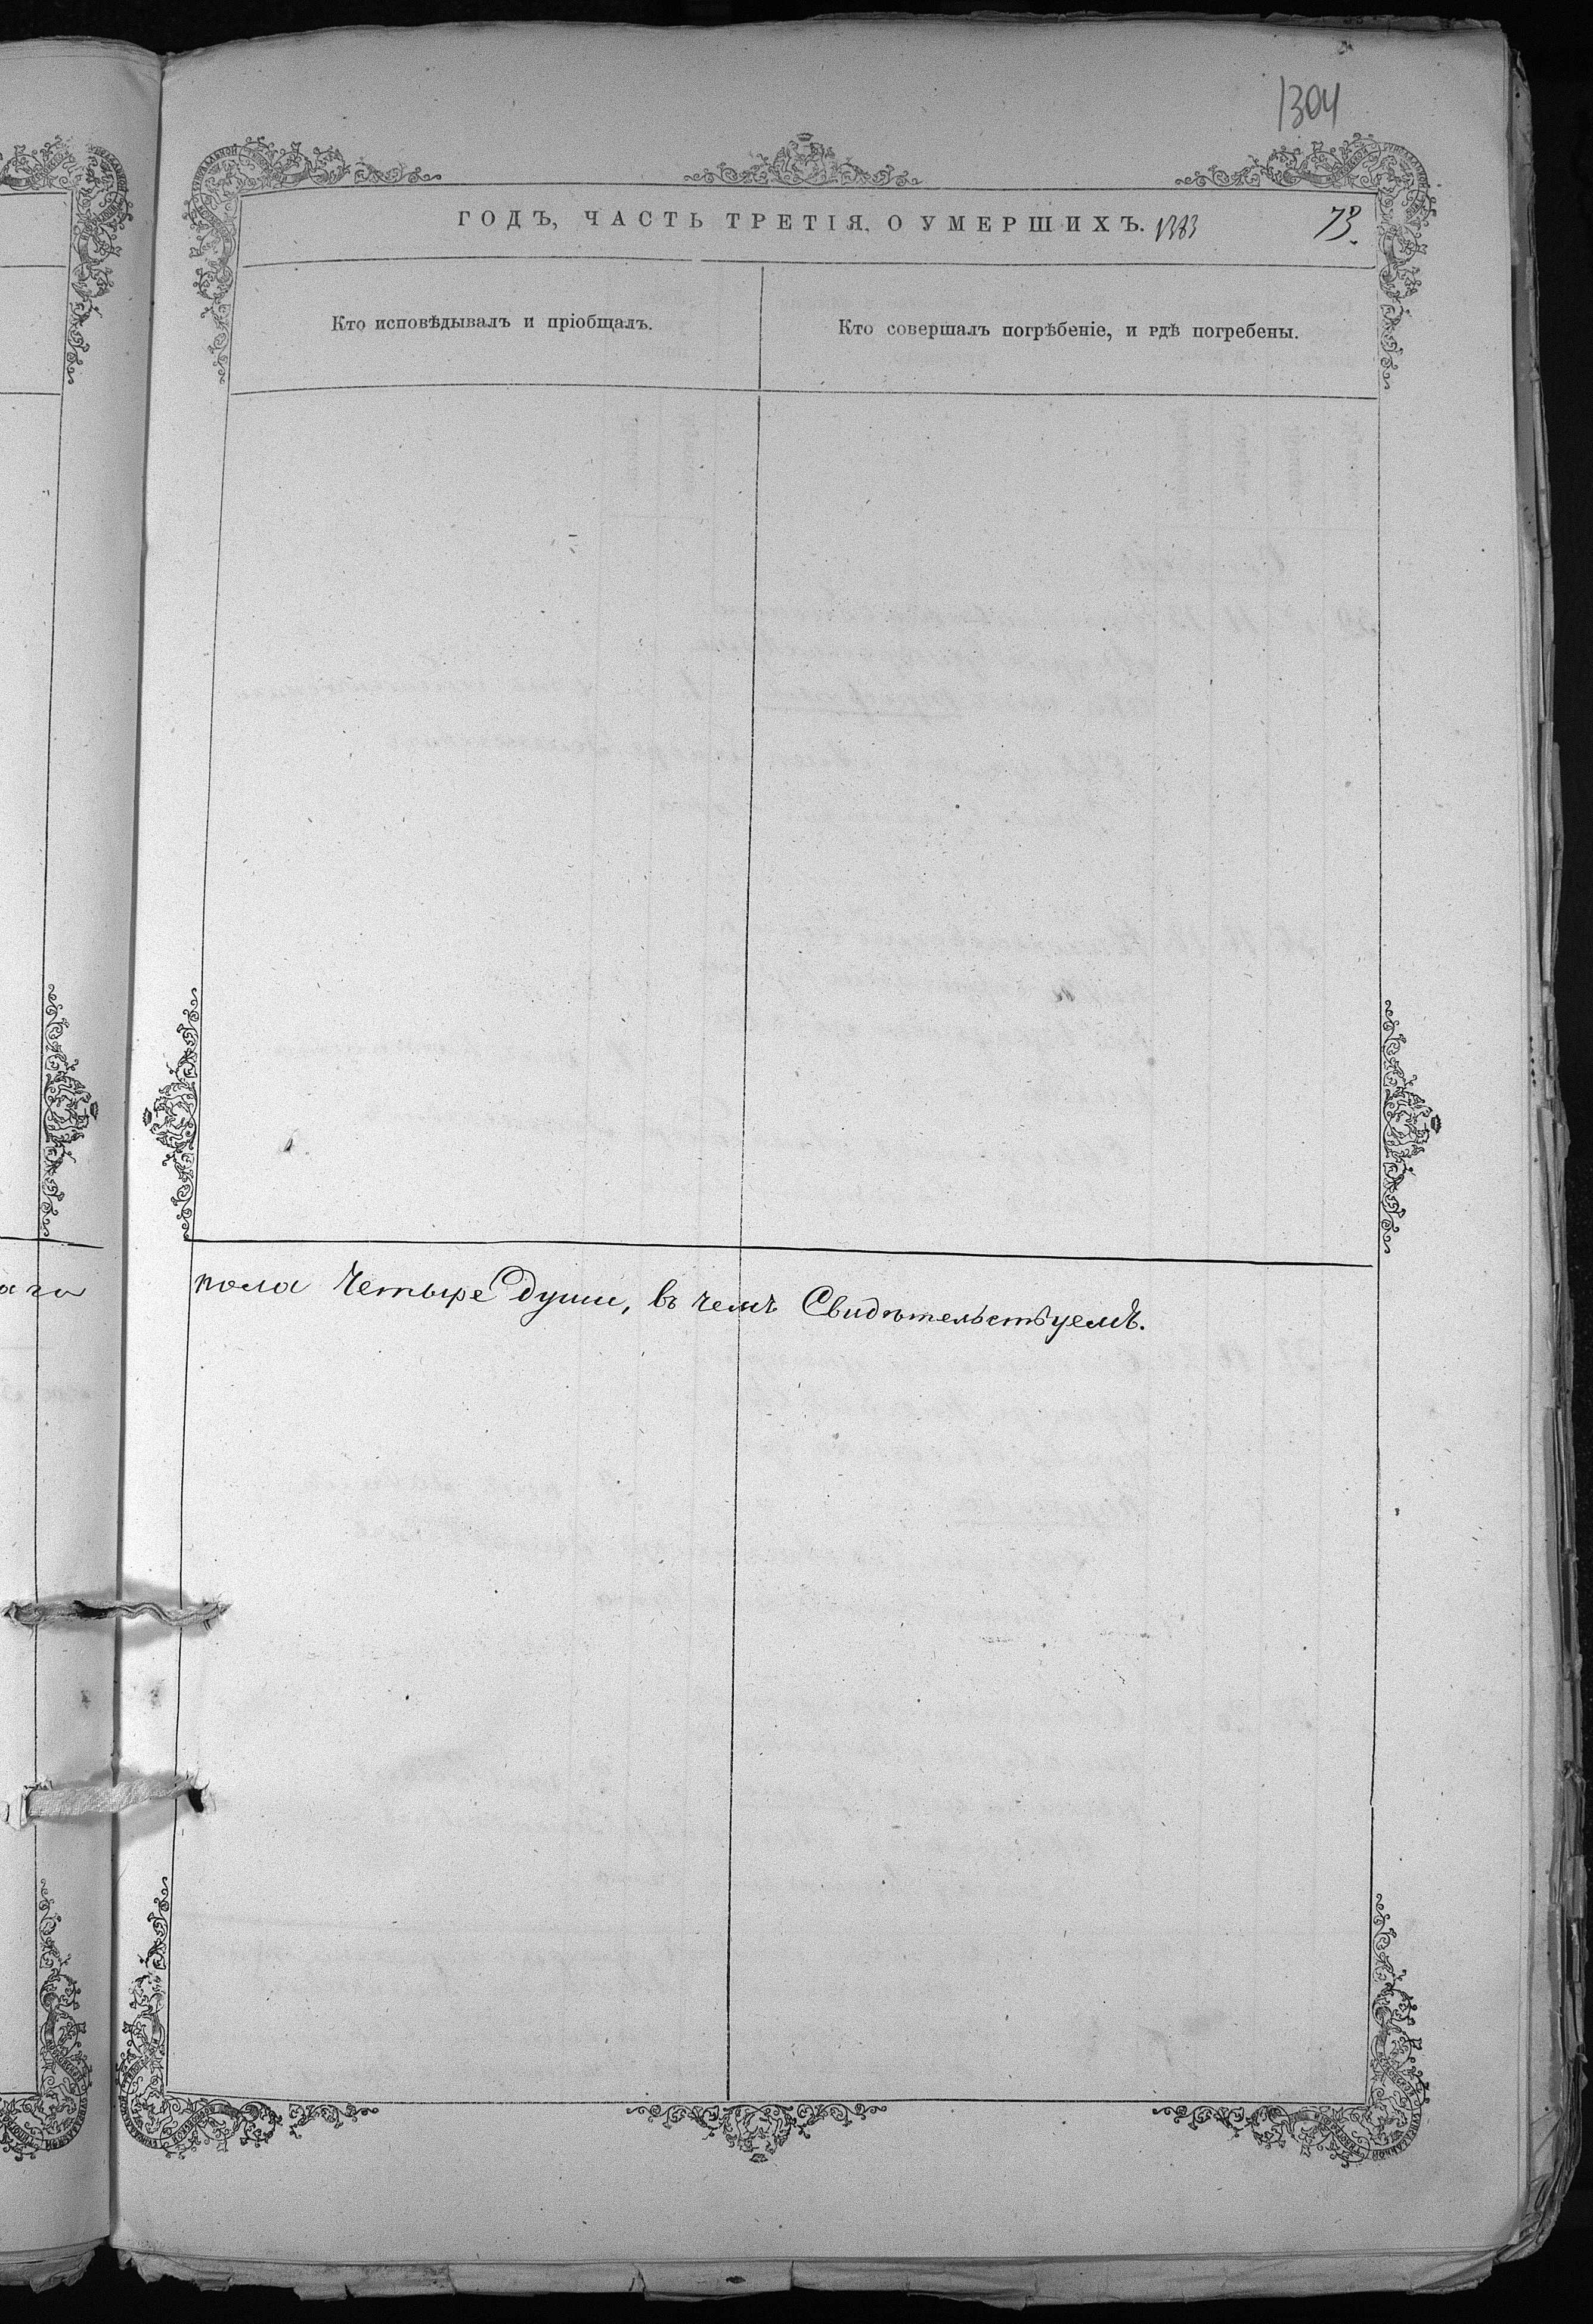 1304
ГОДЪ, ЧАСТЬ ТРЕТІЯ, О УМЕРШИХЪ.
73.
Кто исповѣдывалъ и пріобщалъ.
Кто совершалъ погрѣбеніе, и гдѣ погребены.
пола Четыре души, въ чемъ Свидѣтельствуемъ.